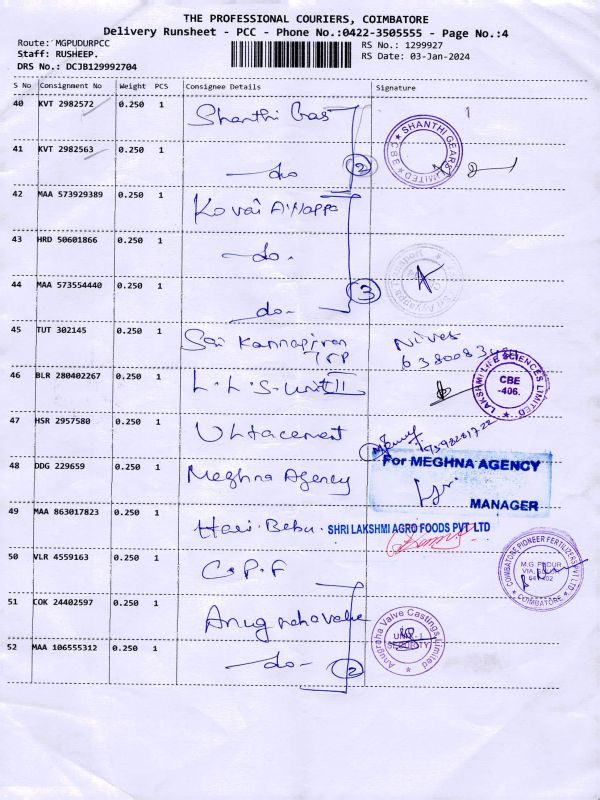 THE PROFESSIONAL COURIERS, COIMBATORE
Delivery Runsheet - PCC - Phone No.:0422-3505555 - Page No.:4
Route: MGPUDURPCC
RS No.: 1299927
Staff: RUSHEEP.
RS Date: 03-Jan-2024
DRS No.: DCJB129992704
S No Consignment No Weight PCS Consignee Details Signature
40 KVT 2982572 0.250 1 Shanthi Gas 1
SHANTHI GEARS LIMITED * CBE *
41 KVT 2982563 0.250 1 do 2
42 MAA 573929389 0.250 1 Kovai Ayyappa
43 HRD 50601866 0.250 1 do.
44 MAA 573554440 0.250 1 do. 3
45 TUT 302145 0.250 1 Sri Kannapiran
46 BLR 280402267 0.250 1 L.L.S-Unit II
LAKSHMI LIFE SCIENCES LIMITED
CBE
-406.
47 HSR 2957580 0.250 1 Ultacement
48 DDG 229659 0.250 1 Meghna Agency
For MEGHNA AGENCY
MANAGER
49 MAA 863017823 0.250 1 Hari. Babu. SHRI LAKSHMI AGRO FOODS PVT LTD
50 VLR 4559163 0.250 1 C.P.F
COIMBATORE PIONEER FERTILIZERS PVT LTD
* COIMBATORE *
M.G. PUDUR
51 COK 24402597 0.250 1 Anugrahavalve
Anugraha Valve Castings Limited
UNIT-I
SECURITY
52 MAA 106555312 0.250 1 do- 2